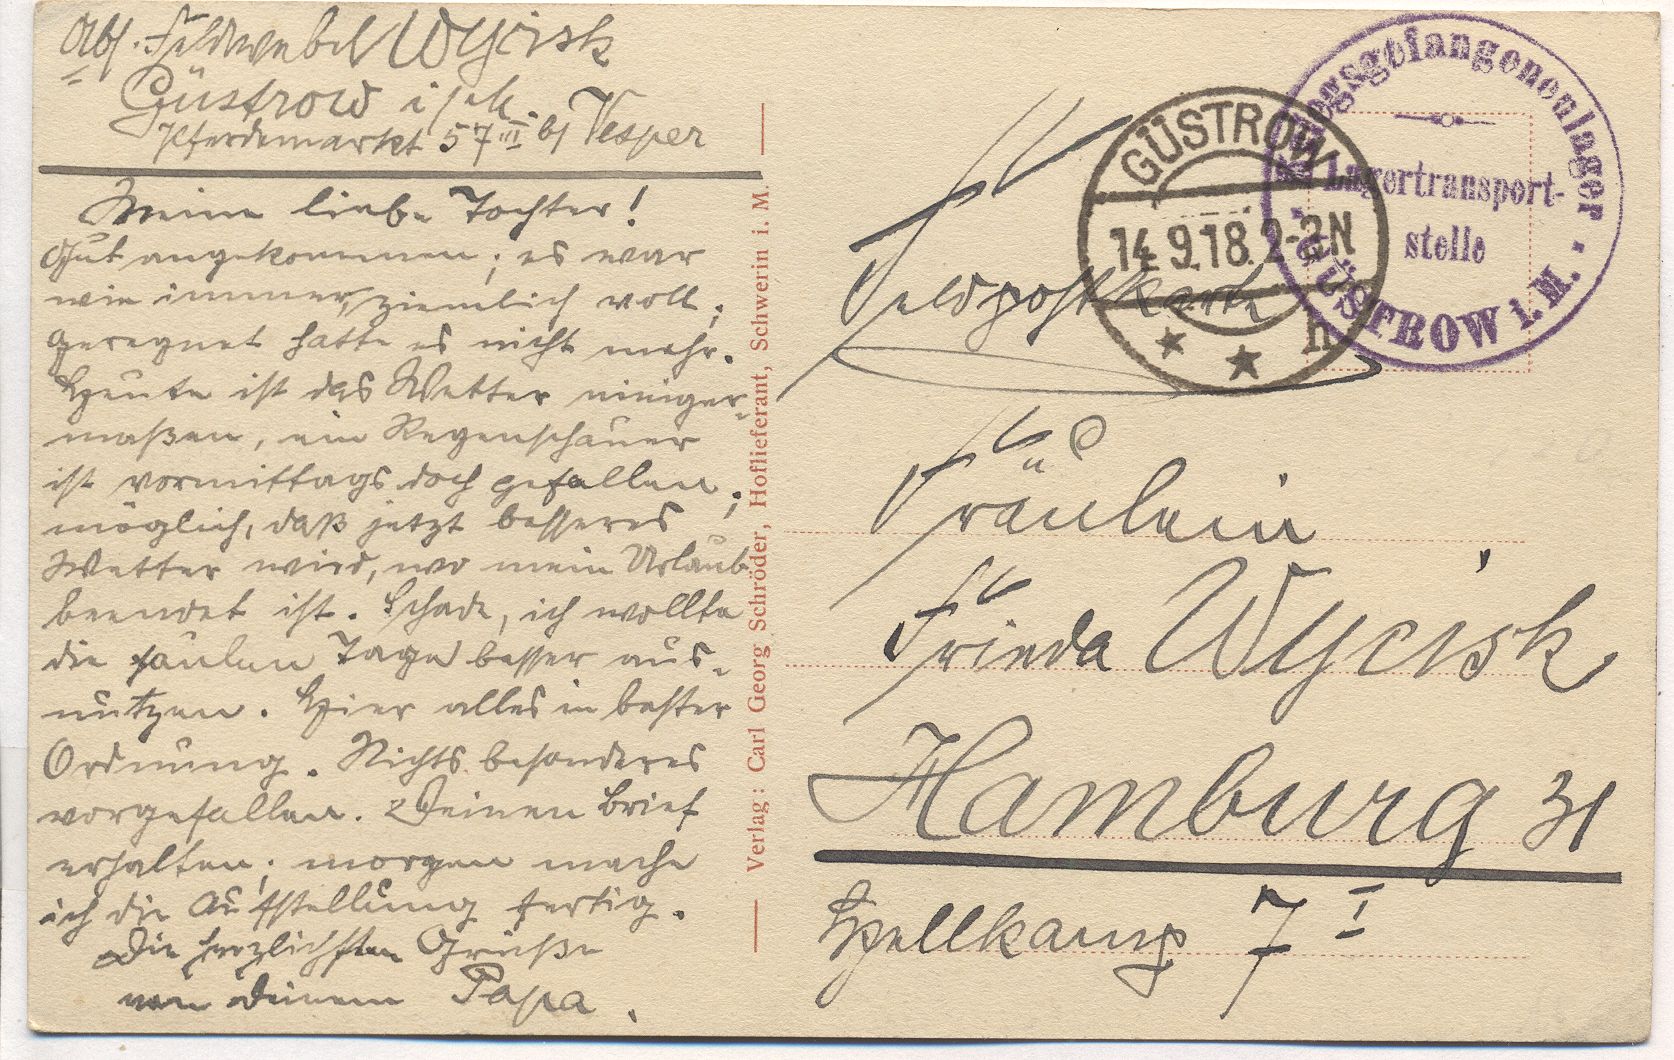 Abs. Feldwebel Wycisk
Güstrow i/M.
Pferdemarkt 57 III b/ Vesper
Meine liebe Tochter!
Gut angekommen; es war
wie immer, ziemlich voll;
geregnet hatte es nicht mehr.
Heute ist das Wetter einiger-
maßen, ein Regenschauer
ist vormittags doch gefallen;
möglich, daß jetzt besseres
Wetter wird, wo mein Urlaub
beendet ist. Schade, ich wollte
die faulen Tage besser aus-
nützen. Hier alles in bester
Ordnung. Nichts besonderes
vorgefallen. Deinen Brief
erhalten; morgen mache
ich die Aufstellung fertig.
Die herzlichsten Grüße
von Deinem Papa.
Verlag: Carl Georg Schröder, Hoflieferant, Schwerin i. M.
GÜSTROW
14.9.18.2-3N
h
Kriegsgefangenenlager
Lagertransport-
stelle
GÜSTROW i. M.
Feldpostkarte
Fräulein
Frieda Wycisk,
Hamburg 31
Hellkamp 7 I